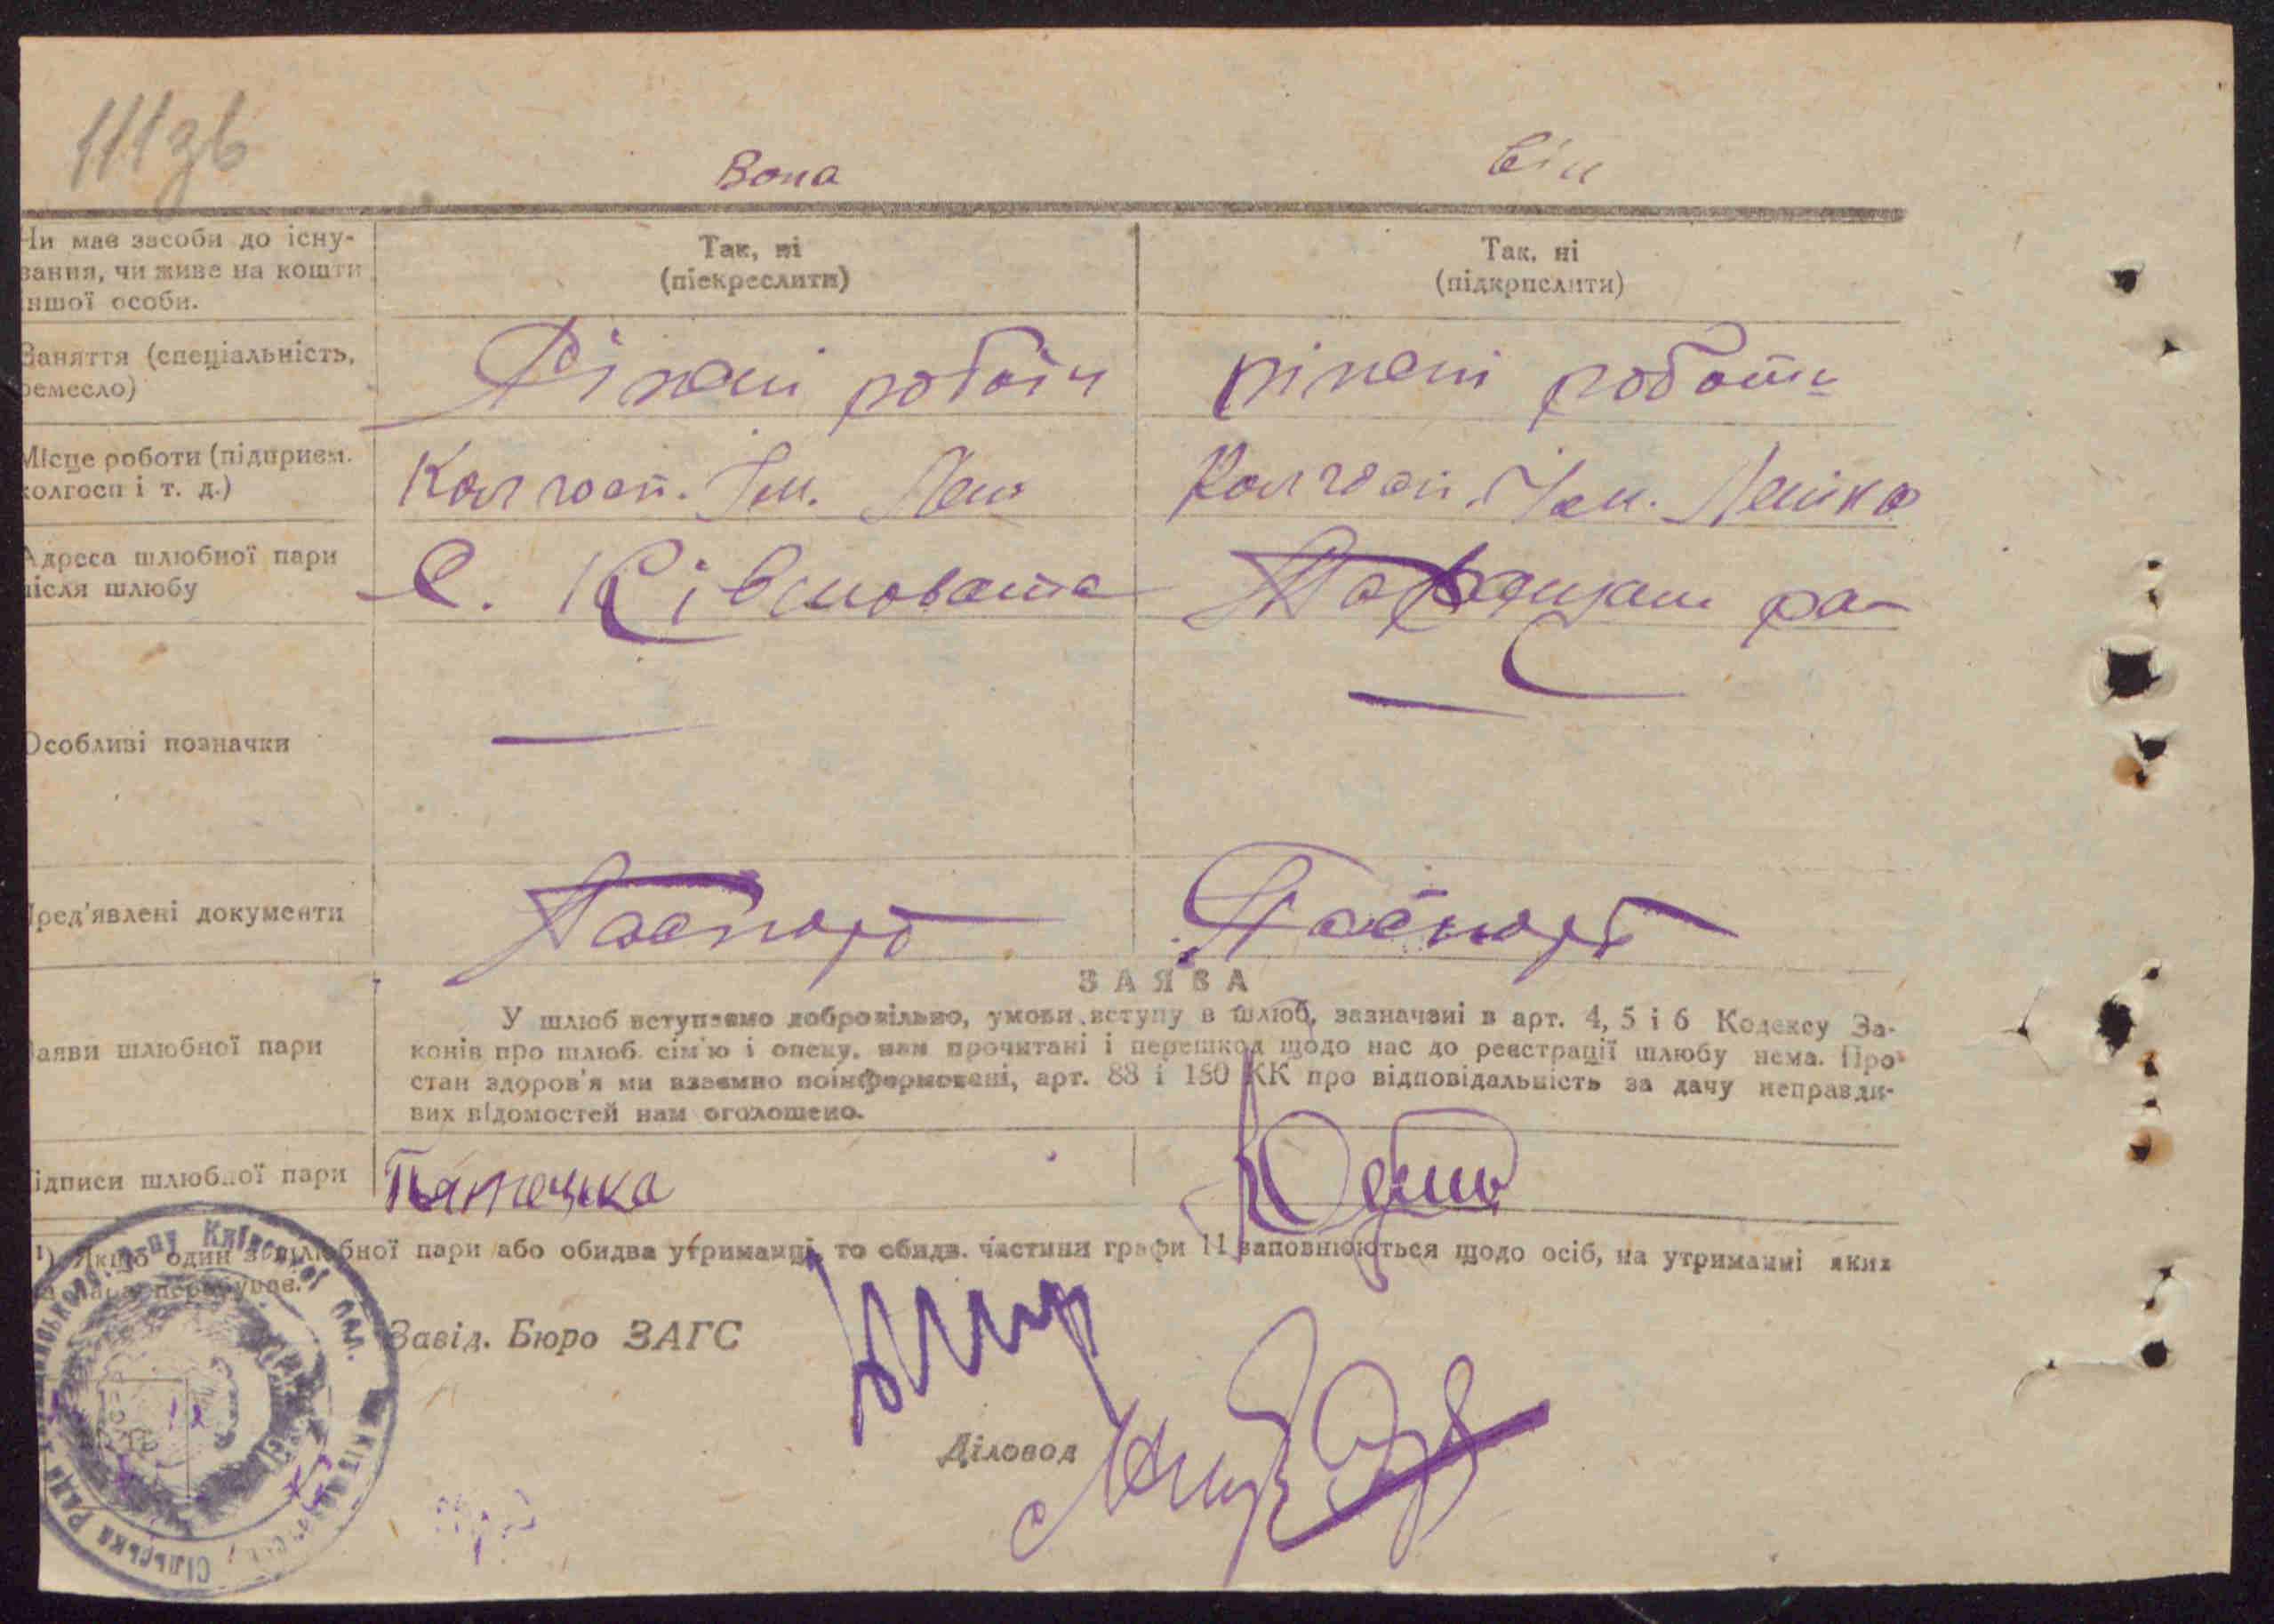 111зв
Вона
Він
Чи має засоби до існу-
вання, чи живе на кошти
іншої особи.
Так, ні
(піекреслити)
Так, ні
(підкрпслити)
Заняття (спеціальність,
ремесло)
Різені робоіч
різені роботи
Місце роботи (підприєм.
колгосп і т. д.)
Колгосп. Ім. Лен
Колгосп. Ім. Леніна
Адреса шлюбної пари
після шлюбу
С. Ківшовата
Таращан ра-
Особливі позначки
Пред'явлені документи
Паспорт
Паспорт
ЗАЯВА
Заяви шлюбної пари
У шлюб вступаємо добровільно, умови вступу в шлюб, зазначені в арт. 4, 5 і 6 Кодексу За-
конів про шлюб. сім'ю і опеку, нам прочитані і перешкод щодо нас до реєстрації шлюбу нема. Про
стан здоров'я ми взаємно поінформовані, арт. 88 і 180 КК про відповідальність за дачу неправди-
вих відомостей нам оголошено.
Підписи шлюбної пари
¹) Якщо один з шлюбної пари або обидва утриманці, то обидв. частини графи 11 заповнюються щодо осіб, на утриманні яких
ця пара перебував.
Завід. Бюро ЗАГС
Діловод
Сільська Рада
Київської